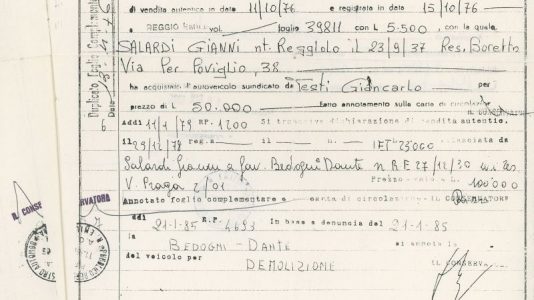 di vendita autentico in data 11/10/76 e registrata in data 15/10/76
a REGGIO EMILIA vol/foglio 39811 con L 5.500 con la quale
SALARDI GIANNI nt. Reggiolo il 23/9/37 Res. Boretto
Via Per Poviglio, 38
ha acquistato l'autoveicolo suindicato da Testi Giancarlo per
prezzo di L 50.000 fatto annotamento sulla carte di circolaz.
Duplicato Foglio Complementare
Data
6
Addi 11/1/79 RP. 1200 Si trascrive dichiarazione di vendita autentic.
il 29/12/78 reg.a il IET 25000 rilasciata da
Salardi Gianni a fav. Bedogni Dante n RE 27/12/30 ivi res
V. Praga 2/01 Prezzo 100'000
Annotato foglio complementare e carta di circolazione - IL CONSERVATORE
addi 21-1-85 R.P. 4693 In base a denuncia del 21-1-85
la BEDOGNI-DANTE si annota la
del veicolo per DEMOLIZIONE
IL CONSERVA
IL CONSE
RVATORE